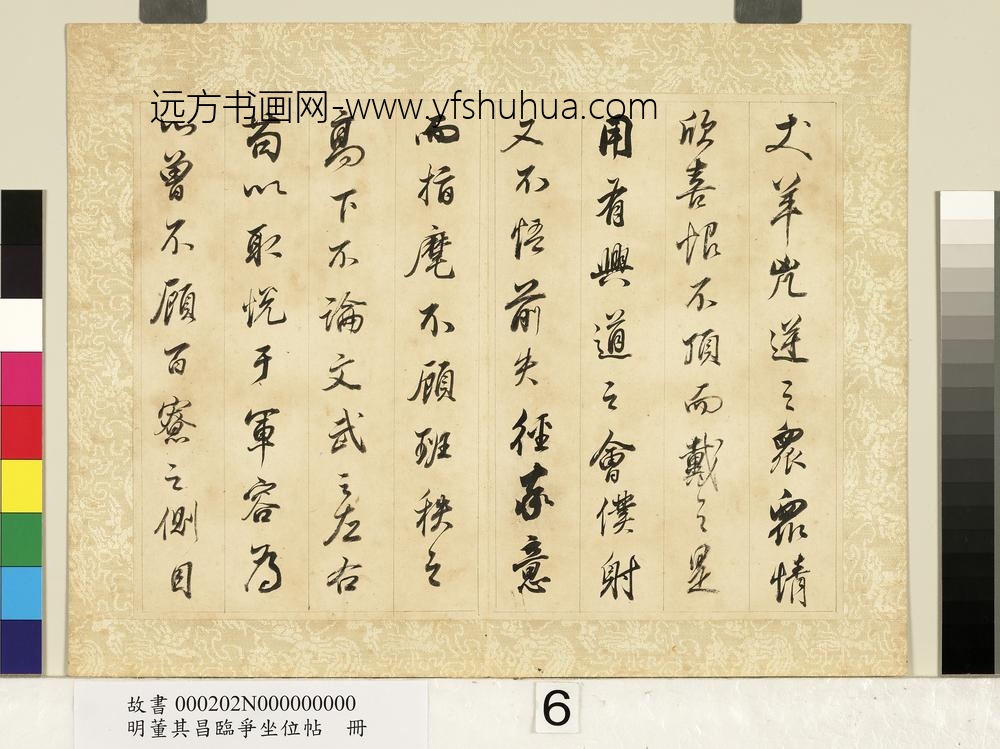 远方书画网-www.yfshuhua.com
犬羊兇逆之衆衆情
欣喜恨不頂而戴之是
用有興道之會僕射
又不悟前失徑率意
而指麾不顧班秩之
高下不論文武之左右
苟以取悅于軍容為
心曾不顧百寮之側目
故書 000202N000000000
明董其昌臨爭坐位帖 冊
6